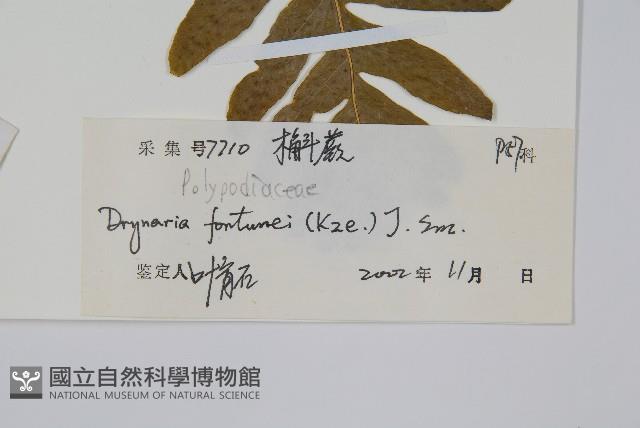 采集号7710 槲蕨 科
Polypodiaceae
Drynaria fortunei (Kze.) J. Sm.
鉴定人 叶育石 2002年11月 日
國立自然科學博物館
NATIONAL MUSEUM OF NATURAL SCIENCE